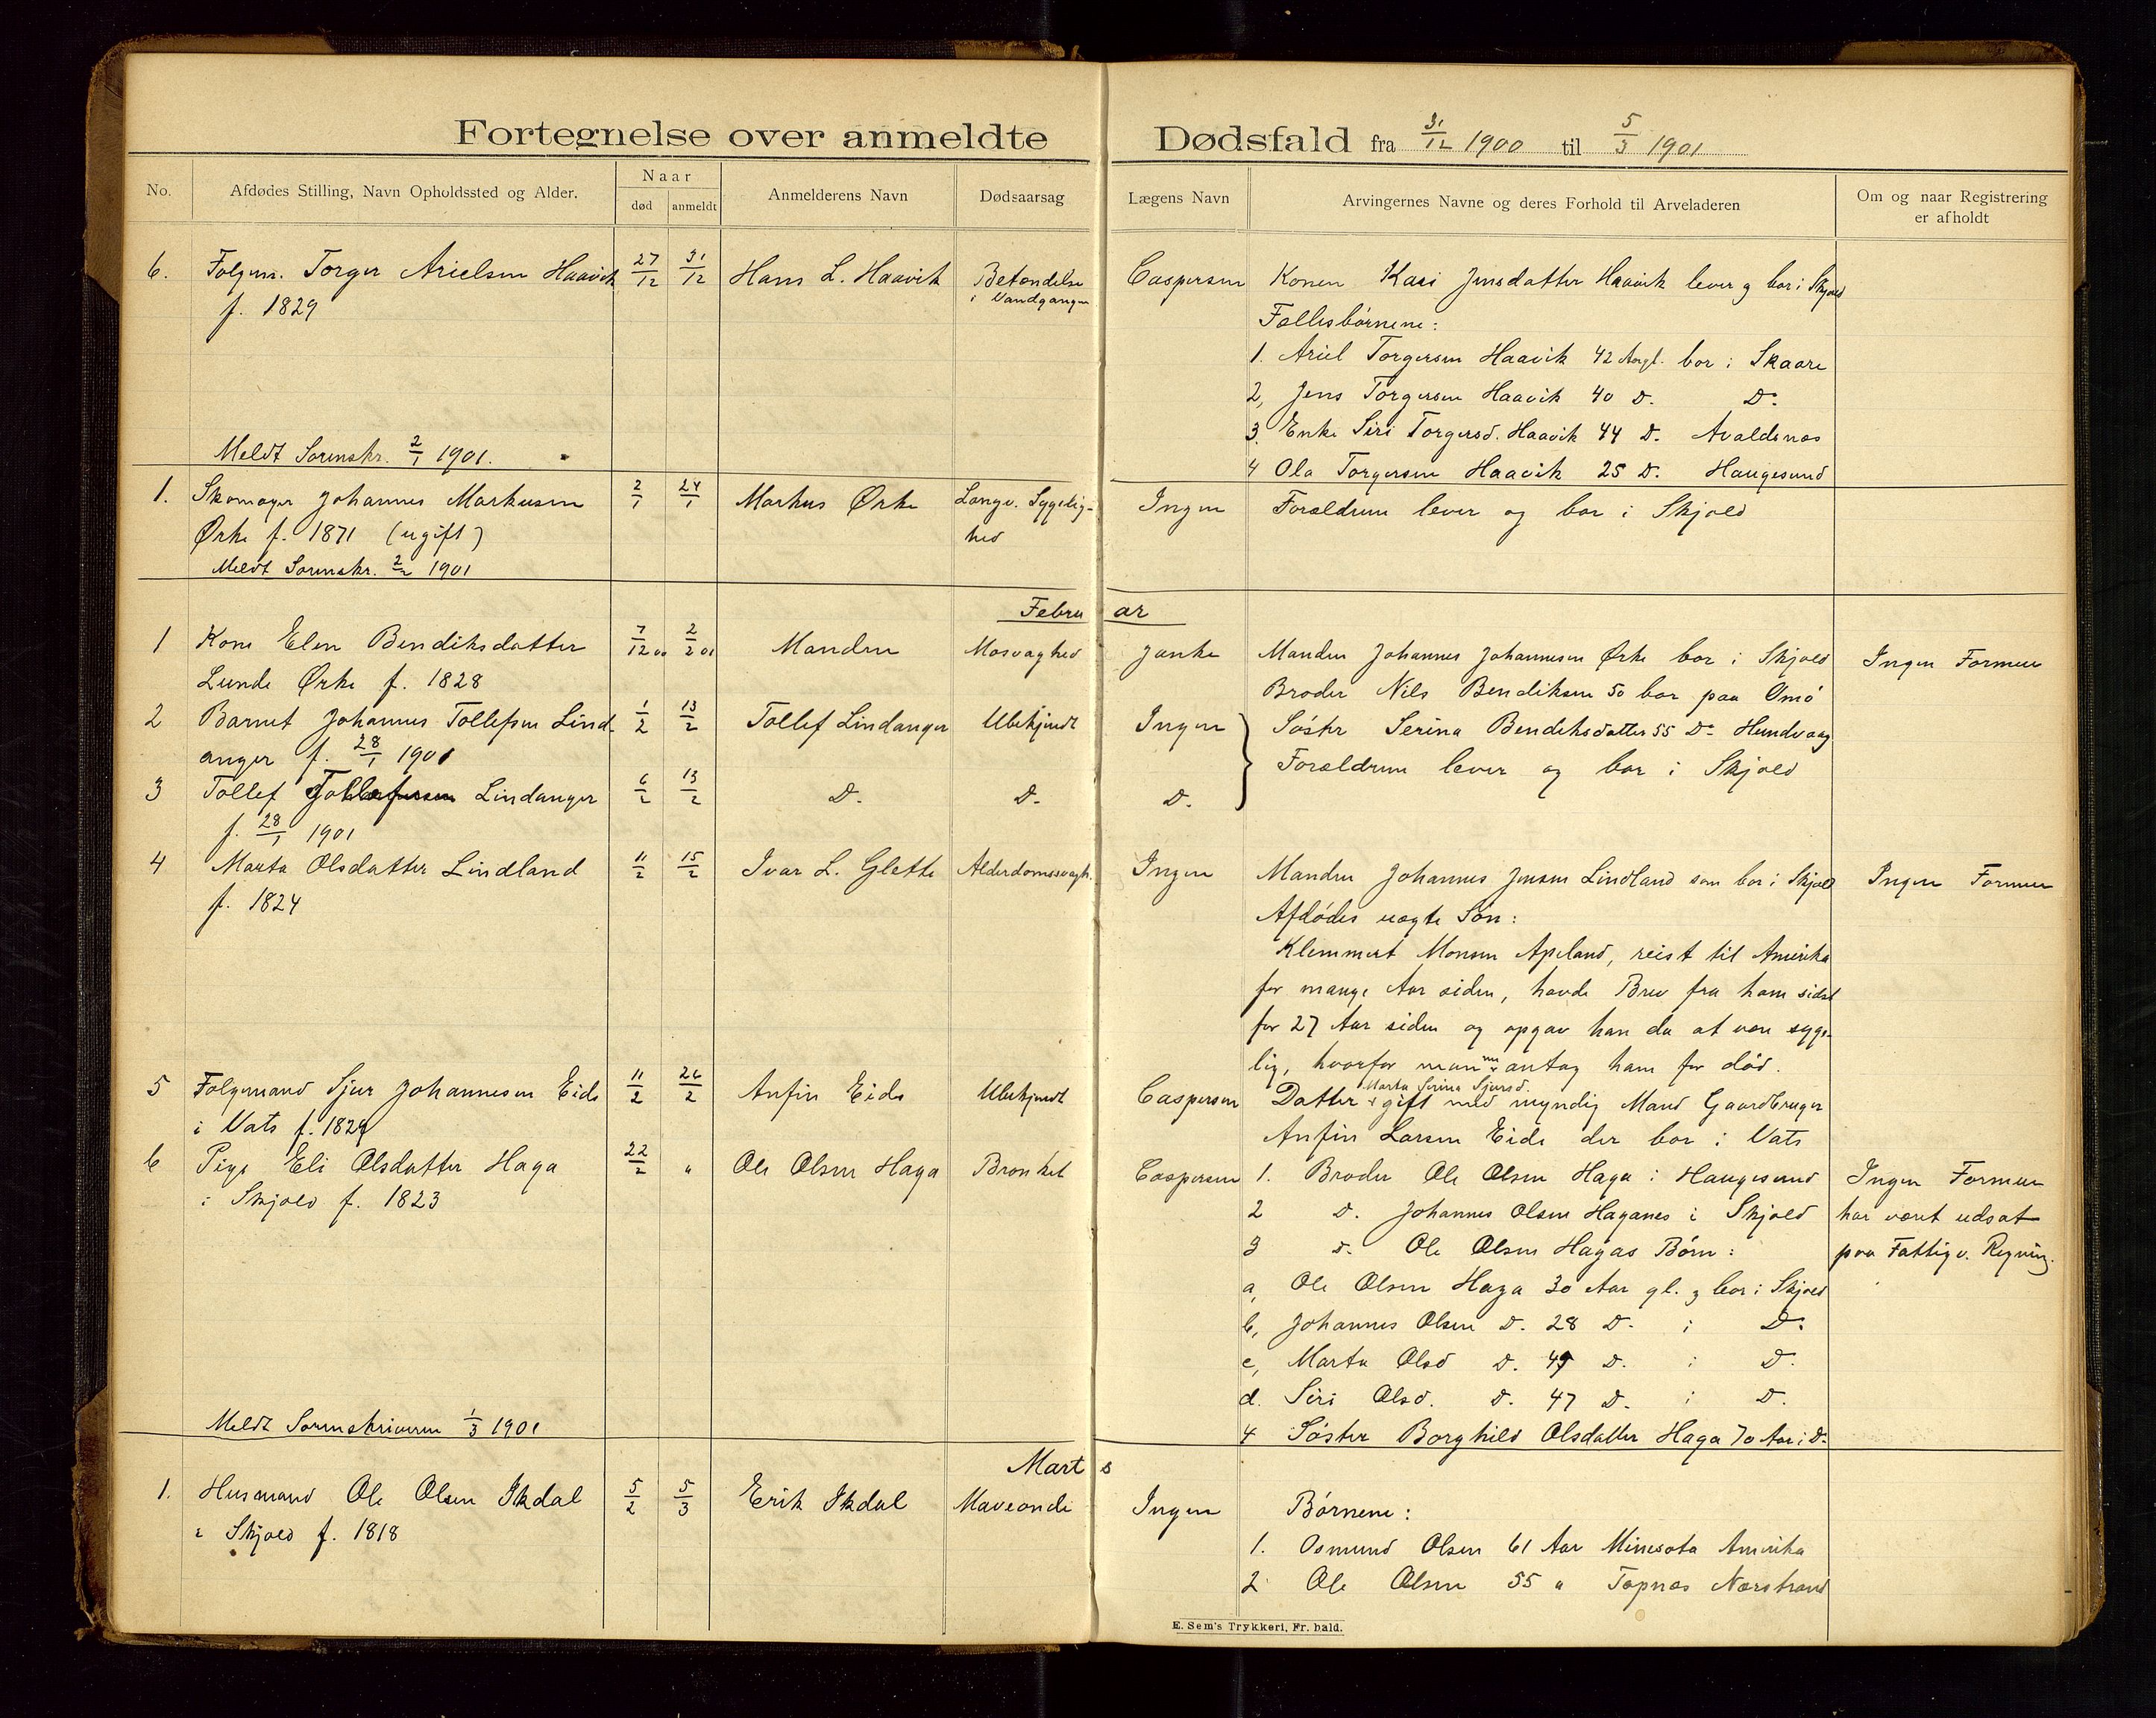 Fortegnelse over anmeldte Dødsfald fra 31/12 1900 til 5/3 1901
No.
Afdødes Stilling, Navn Opholdssted og Alder.
Naar
død
anmeldt
Anmelderens Navn
Dødsaarsag
Lægens Navn
Arvingernes Navne og deres Forhold til Arveladeren
Om og naar Registrering
er afholdt
6. Folgem. Torger Arielsen Haavik 27/12 31/12 Hans L. Haavik Betændelse
i Vandgangen
f. 1829
Caspersen Konen Kari Jensdatter Haavik lever og bor i Skjold
Fællesbørnene:
1. Ariel Torgersen Haavik 42 Aargl. bor i Skaare
2, Jens Torgersen Haavik 40 D. D.
3. Enke Siri Torgersd. Haavik 44 D. Avaldsnæs
4 Ola Torgersen Haavik 25 D. Haugesund
Meldt Sorenskr. 2/1 1901.
1. Skomager Johannes Markusen 2/1 24/1 Markus Ørke Langv. Sygelig-
hed
Ørke f. 1871 (ugift)
Ingen Forældrene lever og bor i Skjold
Meldt Sorenskr. 2/2 1901
Februar
1 Kone Elen Bendiksdatter 7/12 00 2/2 01 Manden Mosvaghed
Lunde Ørke f. 1828
Janke Manden Johannes Johannesen Ørke bor i Skjold Ingen Formue
Broder Nils Bendiksen 50 bor paa Omø
Søster Serina Bendiksdatter 55 D. Hundvaag
2 Barnet Johannes Tollefsen Lind- 1/2 13/2 Tollef Lindanger Ubekjendt Ingen
anger f. 28/1 1901
Forældrene lever og bor i Skjold
3 Tollef Tollefsen Lindanger 6/2 13/2 D. D. D.
f. 28/1 1901
4 Marta Olsdatter Lindland 11/2 15/2 Ivar L. Glette Alderdomssvagh. Ingen
f. 1824
Manden Johannes Jensen Lindland som bor i Skjold Ingen Formue
Afdødes uægte Søn:
Klemmet Monsen Apeland, reist til Amerika
for mange Aar siden, havde Brev fra ham sidst
for 27 Aar siden og opgav han da at være syge-
lig, hvorfor man nu antag ham for død.
5 Folgemand Sjur Johannesen Eide 11/2 26/2 Anfin Eide Ubekjendt Caspersen
i Vats f. 1829
Marta Serina Sjursd.
Datter gift med myndig Mand Gaardbruger
Anfin Larsen Eide der bor i Vats
6 Pige Eli Olsdatter Haga 22/2 " Ole Olsen Haga Bronket Caspersen
i Skjold f. 1823
1. Broder Ole Olsen Haga i Haugesund Ingen Formue
2 D. Johannes Olsen Haganes i Skjold har været udsat
3 D. Ole Olsen Hagas Børn: paa Fattigv. Regning.
a, Ole Olsen Haga 30 Aar gl. og bor i Skjold
b, Johannes Olsen D. 28 D. i D.
c, Marta Olsd D. 49 D. i D.
d. Siri Olsd. D. 47 D. i D.
4 Søster Borghild Olsdatter Haga 70 Aar i D.
Meldt Sorenskriveren 1/3 1901
Marts
1. Husmand Ole Olsen Ikdal 5/2 5/3 Erik Ikdal Maveonde Ingen
i Skjold f. 1818
Børnene:
1. Osmund Olsen 61 Aar Minesota Amerika
2 Ole Olsen 55 " Tøpnæs Nærstrand
E. Sem's Trykkeri, Fr. hald.